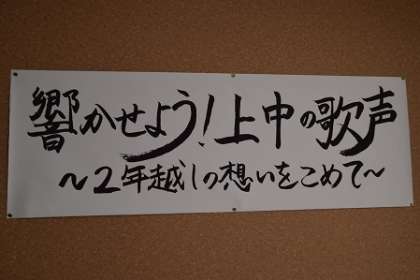 響かせよう!上中の歌声
～2年越しの想いをこめて～